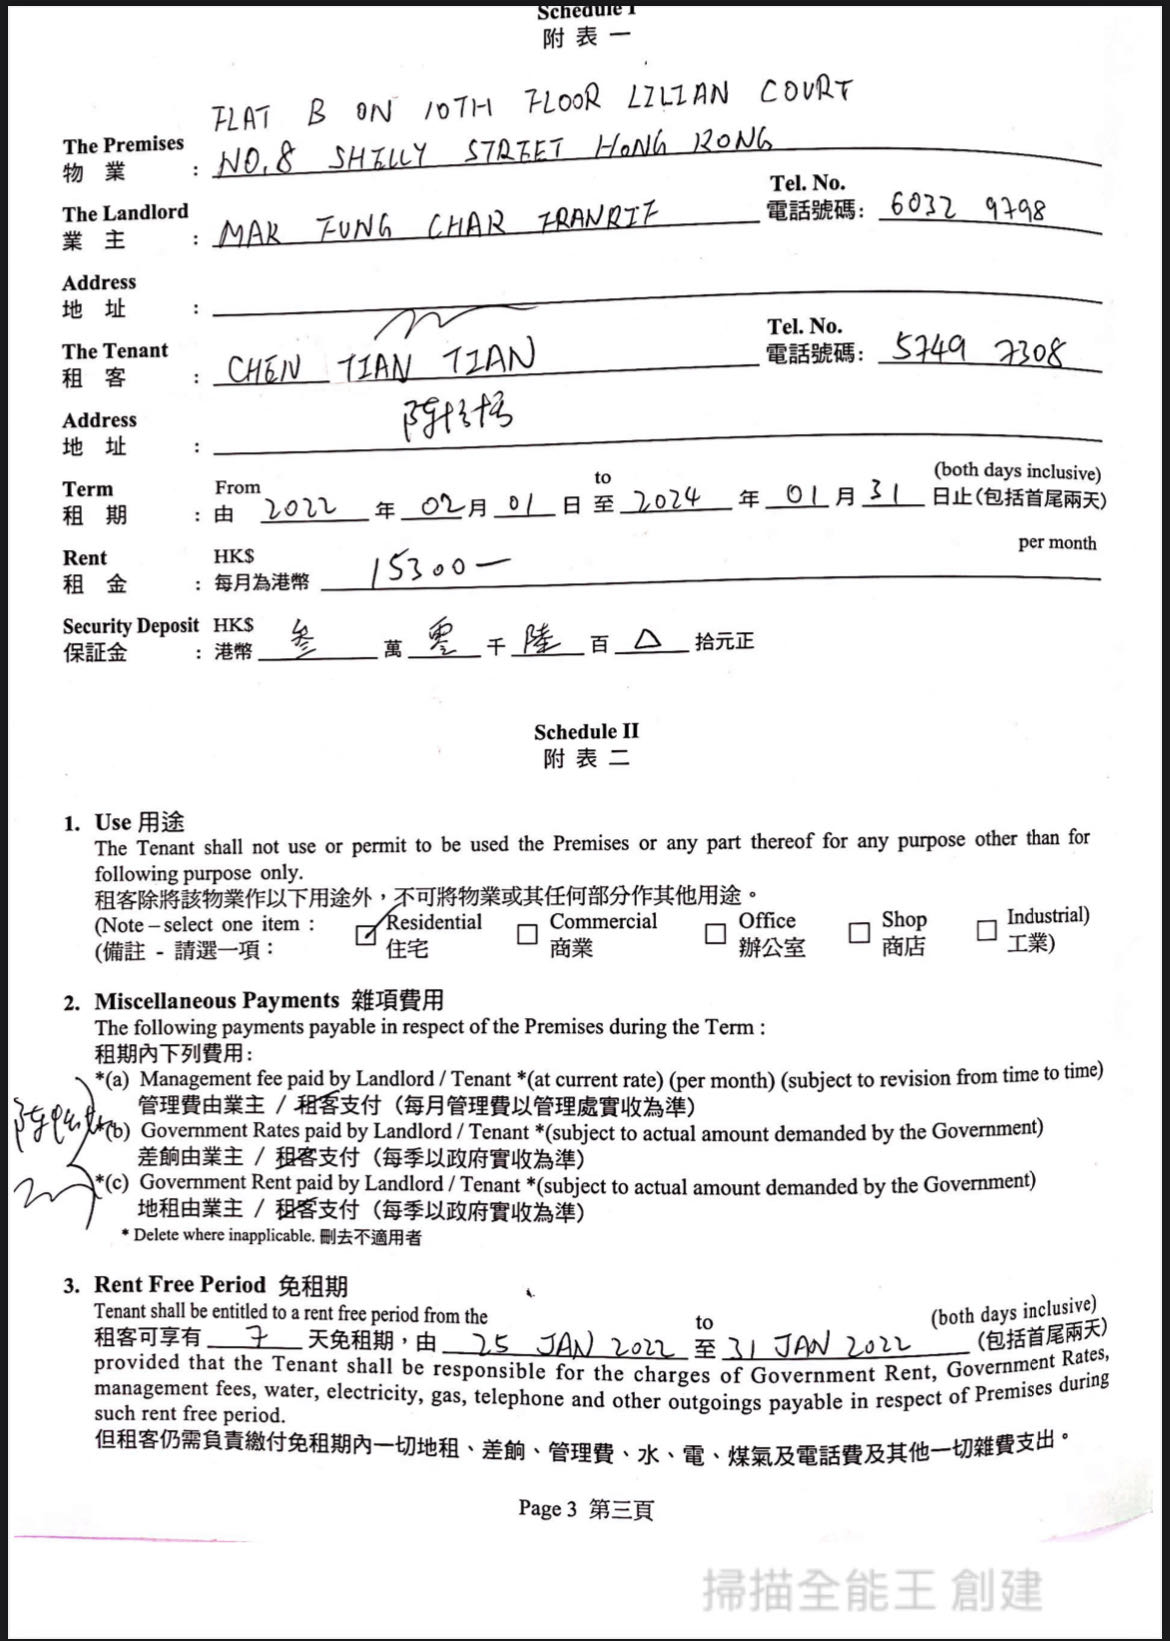 Schedule I
附 表 一
FLAT B ON 10TH FLOOR LILIAN COURT
The Premises
物 業 : NO.8 SHELLY STREET HONG KONG
The Landlord Tel. No.
業 主 : MAK FUNG CHAR 電話號碼: 6032 9798
Address
地 址 :
The Tenant Tel. No.
租 客 : CHEN TIAN TIAN 電話號碼: 5749 7308
Address
地 址 :
Term From to (both days inclusive)
租 期 : 由 2022 年 02 月 01 日 至 2024 年 01 月 31 日止(包括首尾兩天)
Rent HK$ per month
租 金 : 每月為港幣 15300—
Security Deposit HK$
保証金 : 港幣 叁 萬 零 千 陸 百 △ 拾元正
Schedule II
附 表 二
1. Use 用途
The Tenant shall not use or permit to be used the Premises or any part thereof for any purpose other than for
following purpose only.
租客除將該物業作以下用途外，不可將物業或其任何部分作其他用途。
(Note – select one item : Residential Commercial Office Shop Industrial)
(備註 - 請選一項： 住宅 商業 辦公室 商店 工業)
2. Miscellaneous Payments 雜項費用
The following payments payable in respect of the Premises during the Term :
租期內下列費用:
*(a) Management fee paid by Landlord / Tenant *(at current rate) (per month) (subject to revision from time to time)
管理費由業主 / 租客支付（每月管理費以管理處實收為準）
*(b) Government Rates paid by Landlord / Tenant *(subject to actual amount demanded by the Government)
差餉由業主 / 租客支付（每季以政府實收為準）
*(c) Government Rent paid by Landlord / Tenant *(subject to actual amount demanded by the Government)
地租由業主 / 租客支付（每季以政府實收為準）
* Delete where inapplicable. 刪去不適用者
3. Rent Free Period 免租期
Tenant shall be entitled to a rent free period from the to (both days inclusive)
租客可享有 7 天免租期，由 25 JAN 2022 至 31 JAN 2022 (包括首尾兩天)
provided that the Tenant shall be responsible for the charges of Government Rent, Government Rates,
management fees, water, electricity, gas, telephone and other outgoings payable in respect of Premises during
such rent free period.
但租客仍需負責繳付免租期內一切地租、差餉、管理費、水、電、煤氣及電話費及其他一切雜費支出。
Page 3 第三頁
掃描全能王 創建